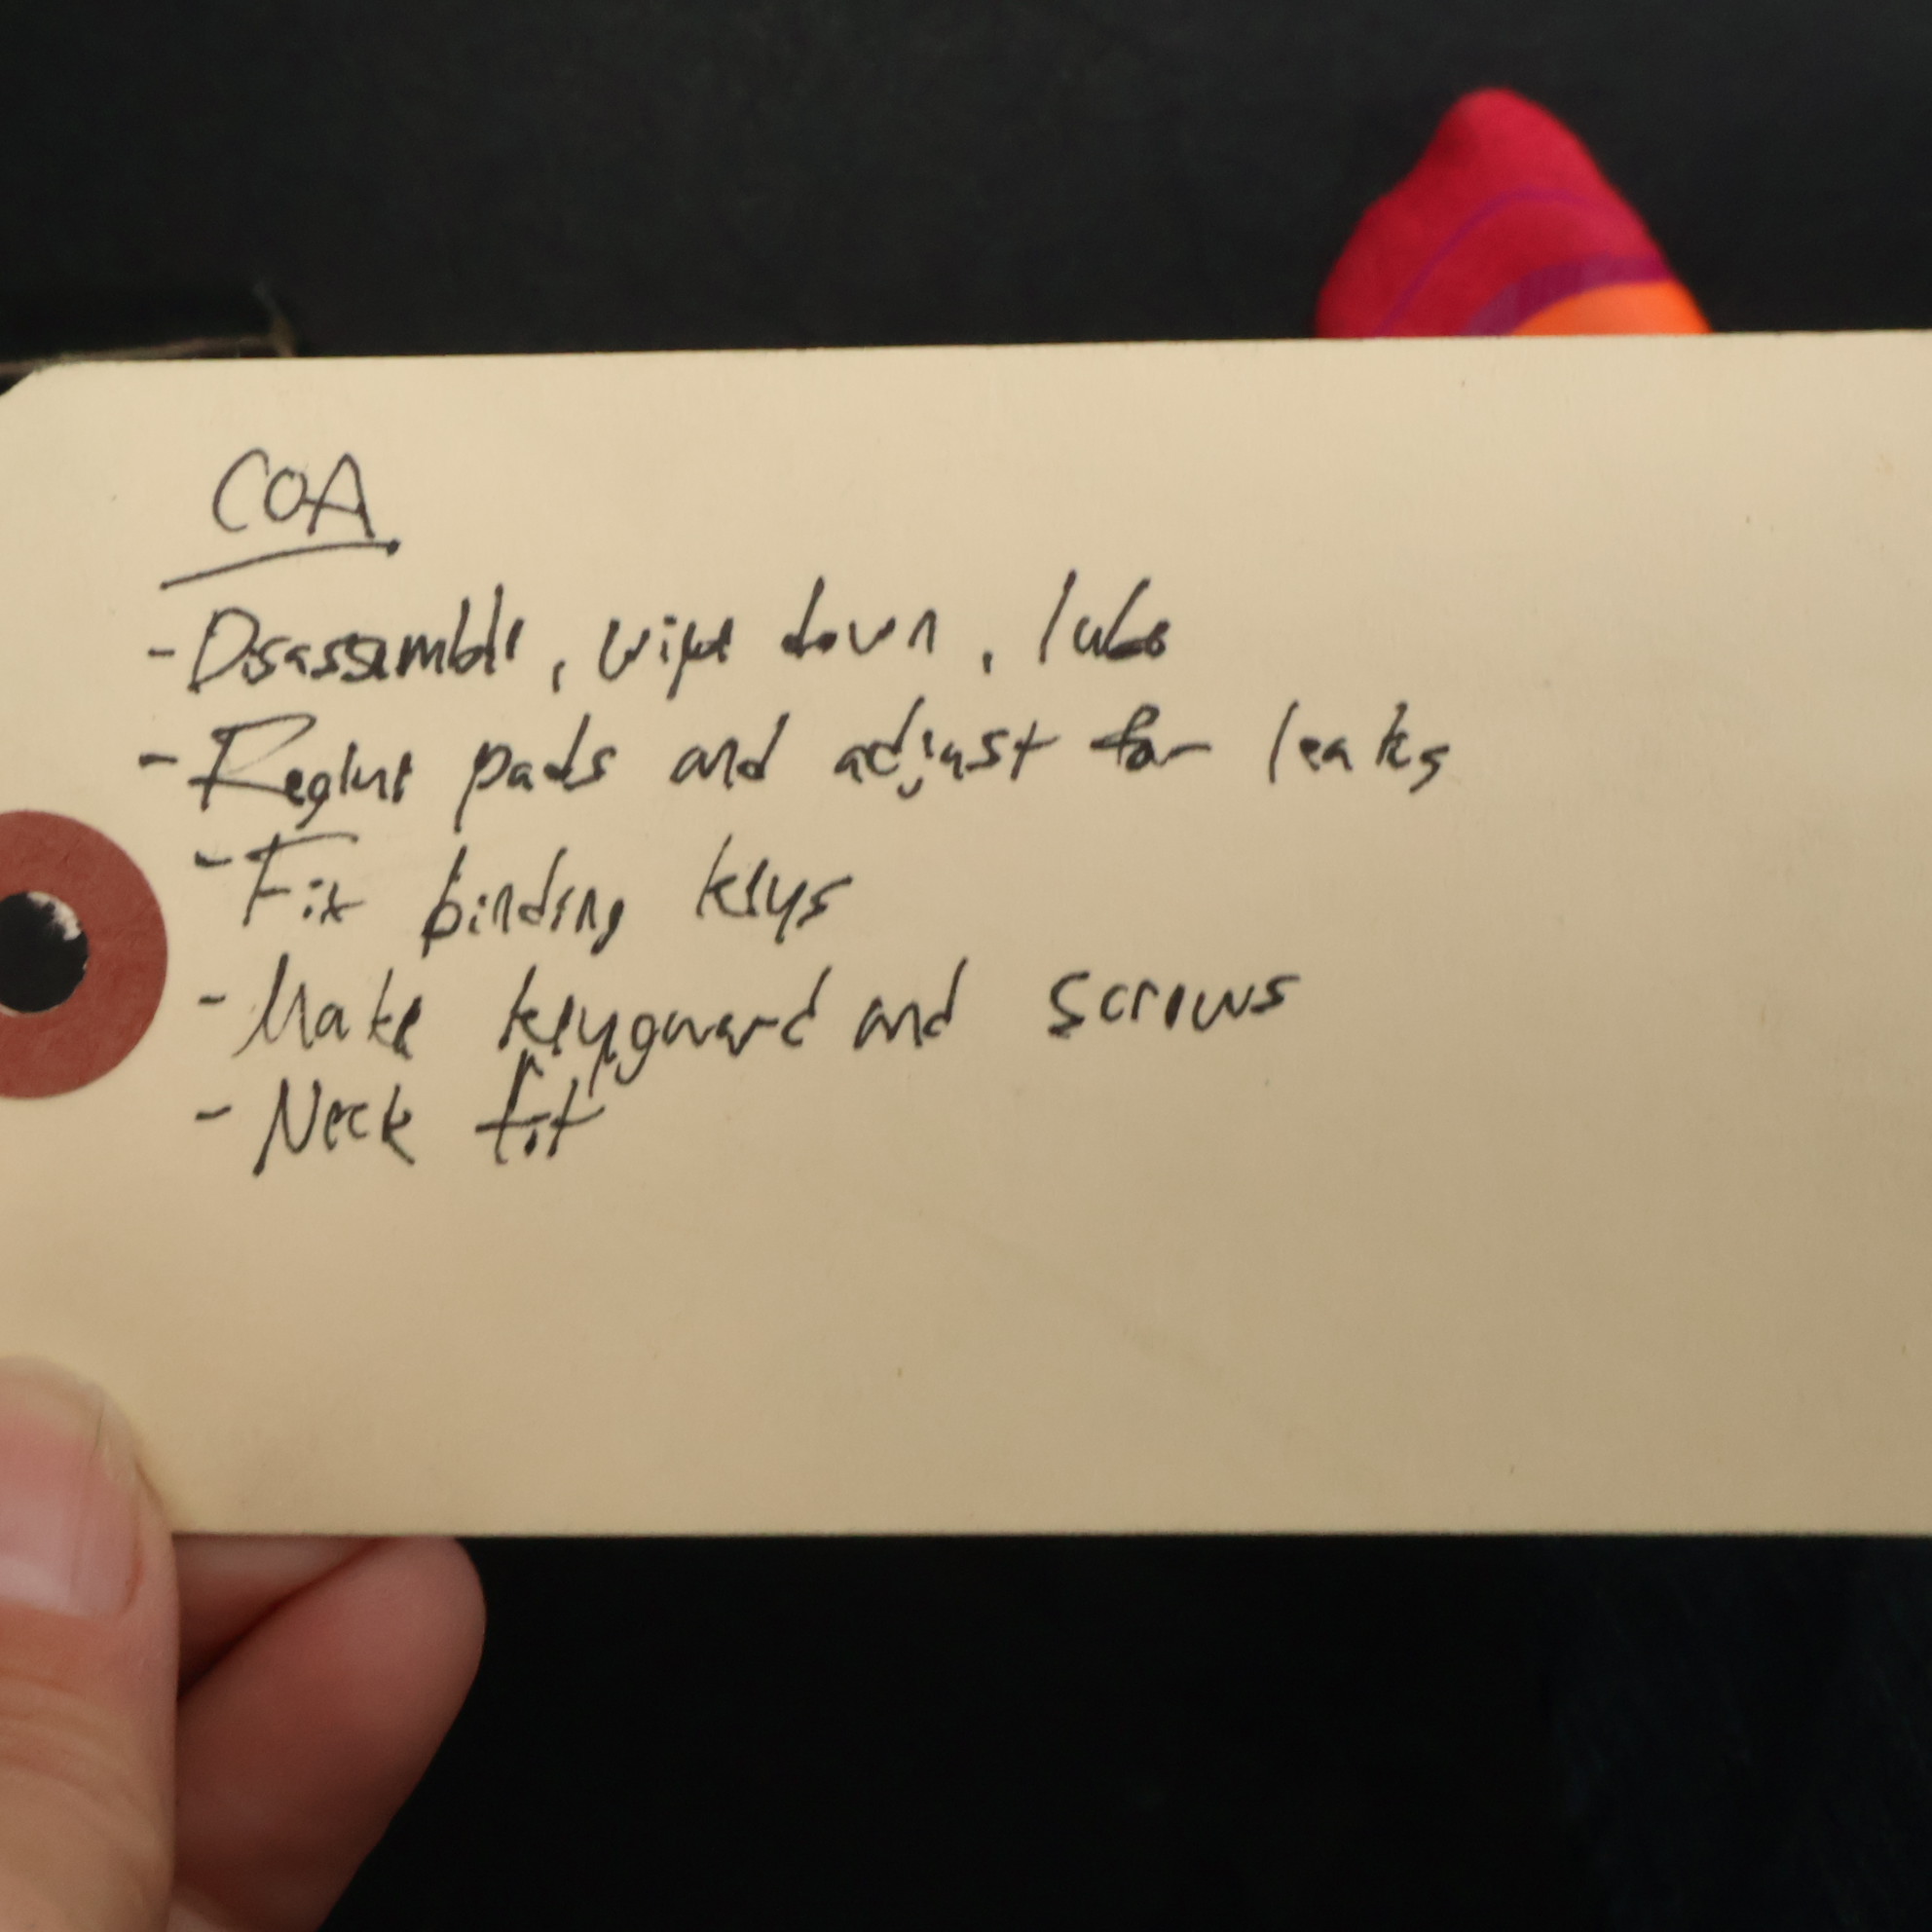 COA
- Disassemble, wipe down, lube
- Reglue pads and adjust for leaks
- Fix binding keys
- Make keyguard and screws
- Neck fit